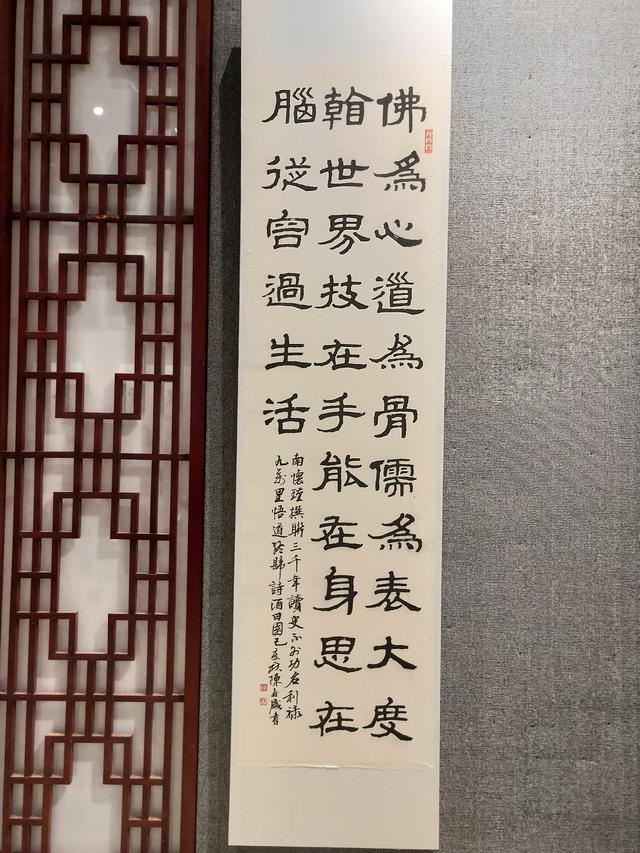 佛為心道為骨儒為表大度
翰世界技在手能在身思在
腦從容過生活
南懷瑾撰聯三千年讀史不外功名利祿
九萬里悟道終歸詩酒田園己亥秋陳
書